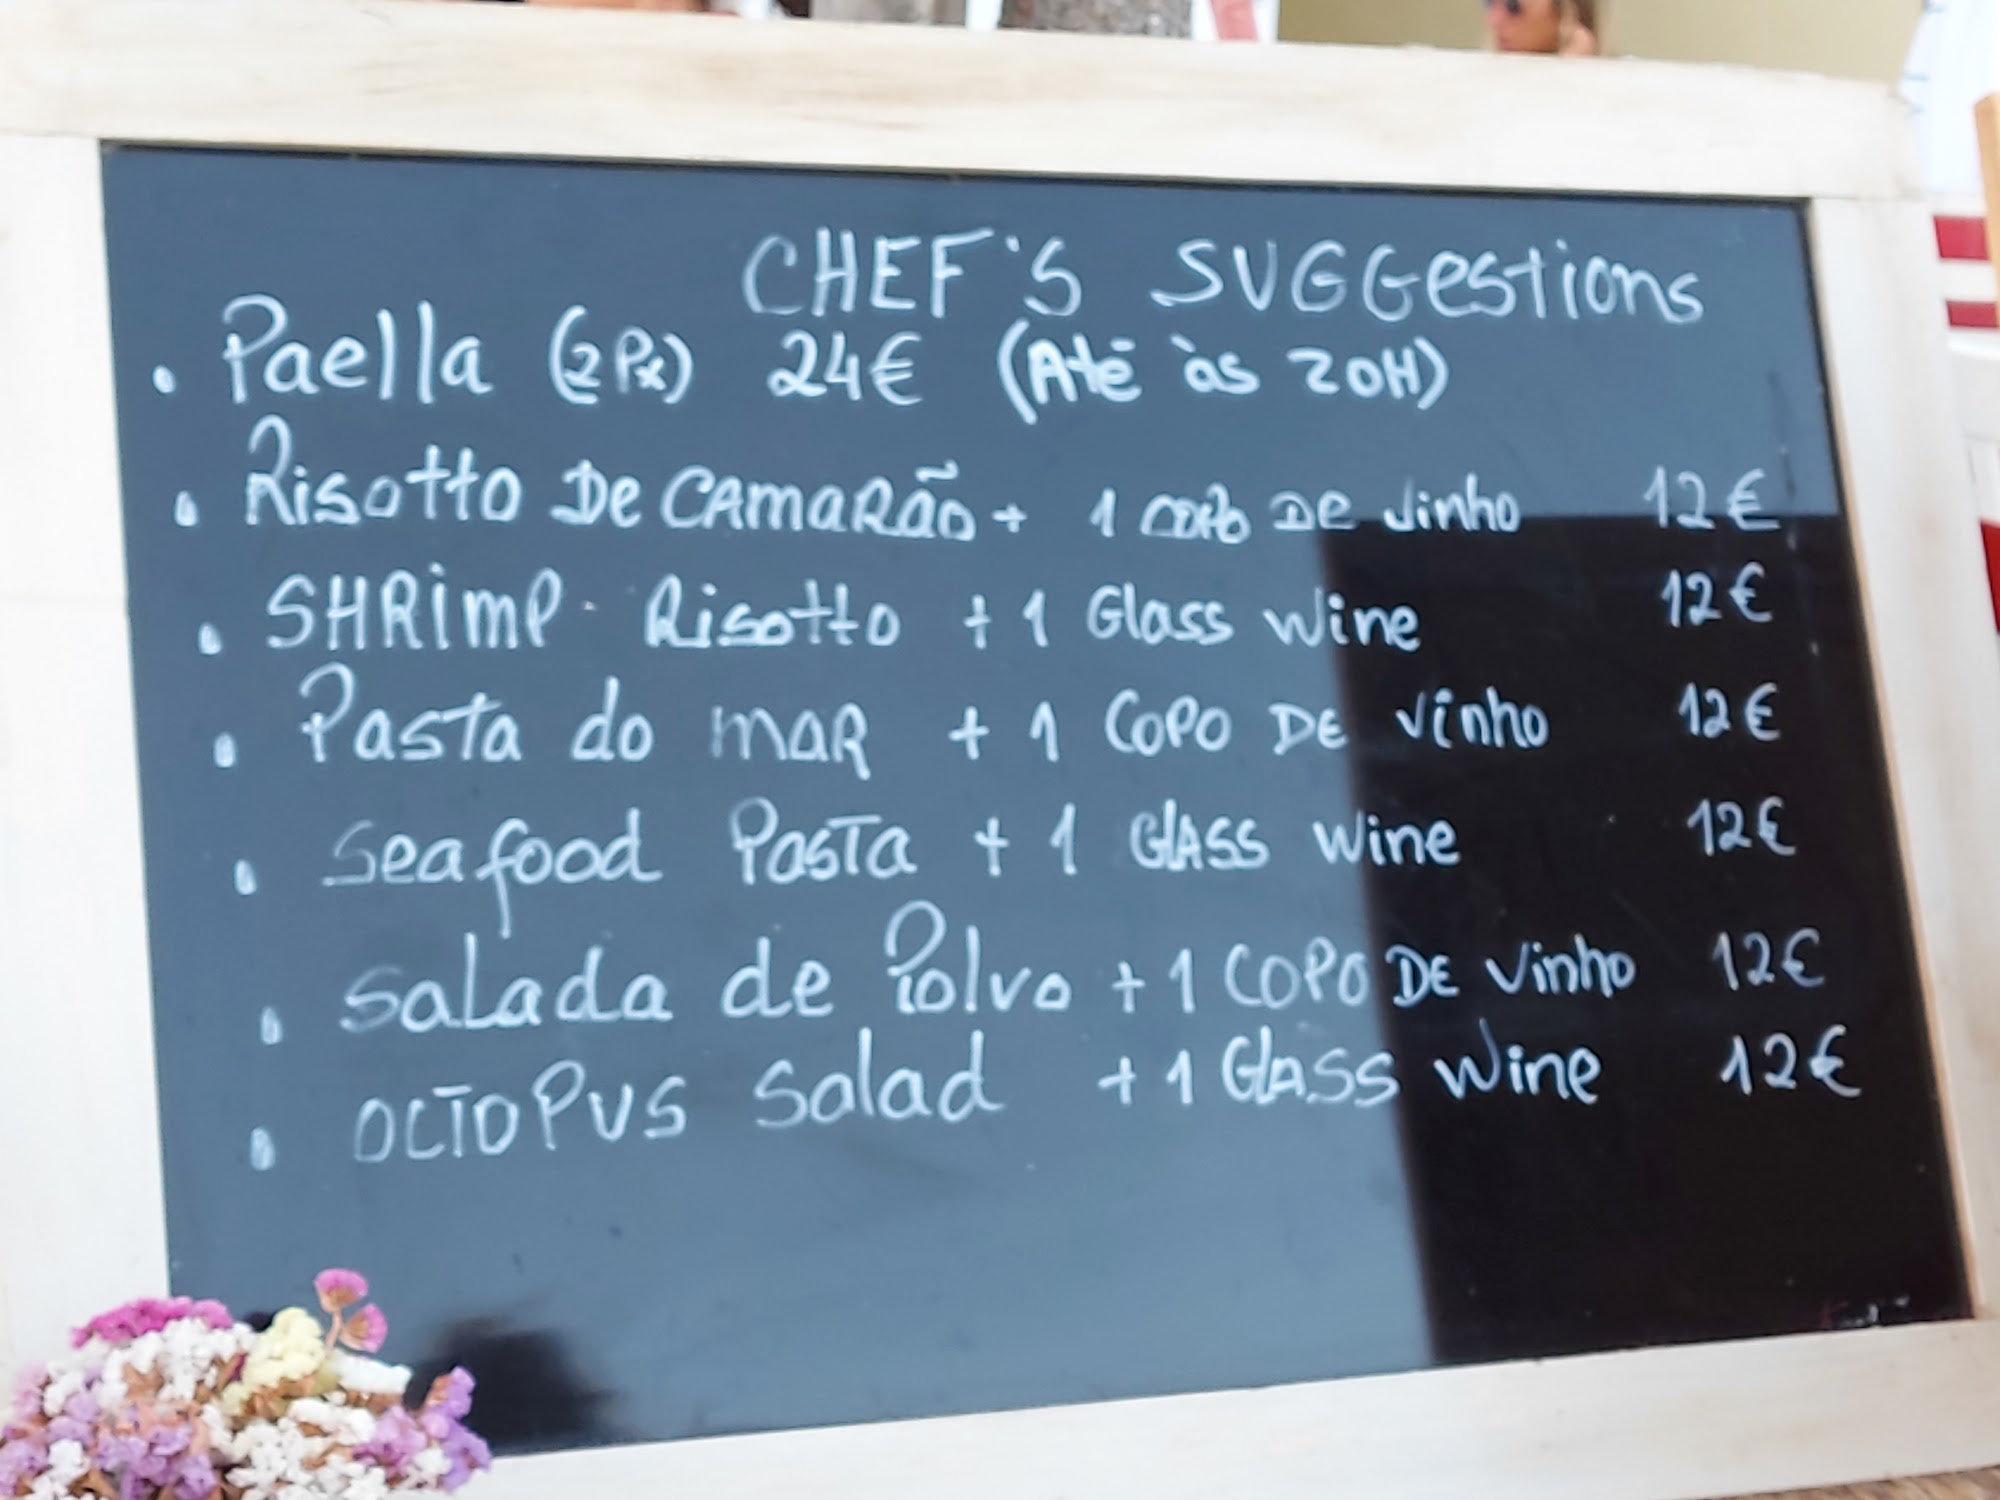 CHEF'S SUGGestions
• Paella (2Px) 24€ (Até às 20H)
• Risotto De CAMARÃo + 1 copo DE vinho 12€
• SHRimp Risotto + 1 Glass wine 12€
• Pasta do mar + 1 COPO DE vinho 12€
• Seafood Pasta + 1 GLASS wine 12€
• Salada de Polvo + 1 COPO DE vinho 12€
• OCTOPUS Salad + 1 GLASS wine 12€